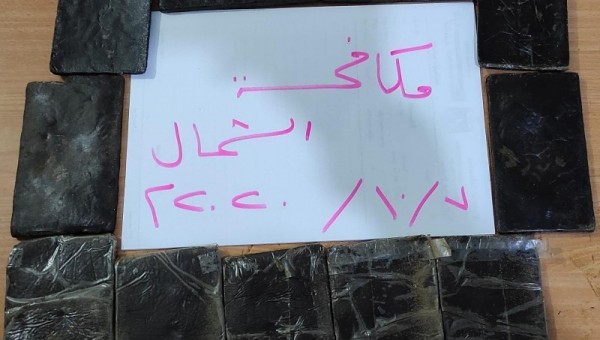 مكافحة
الشمال
٧/١٠/٢٠٢٠م